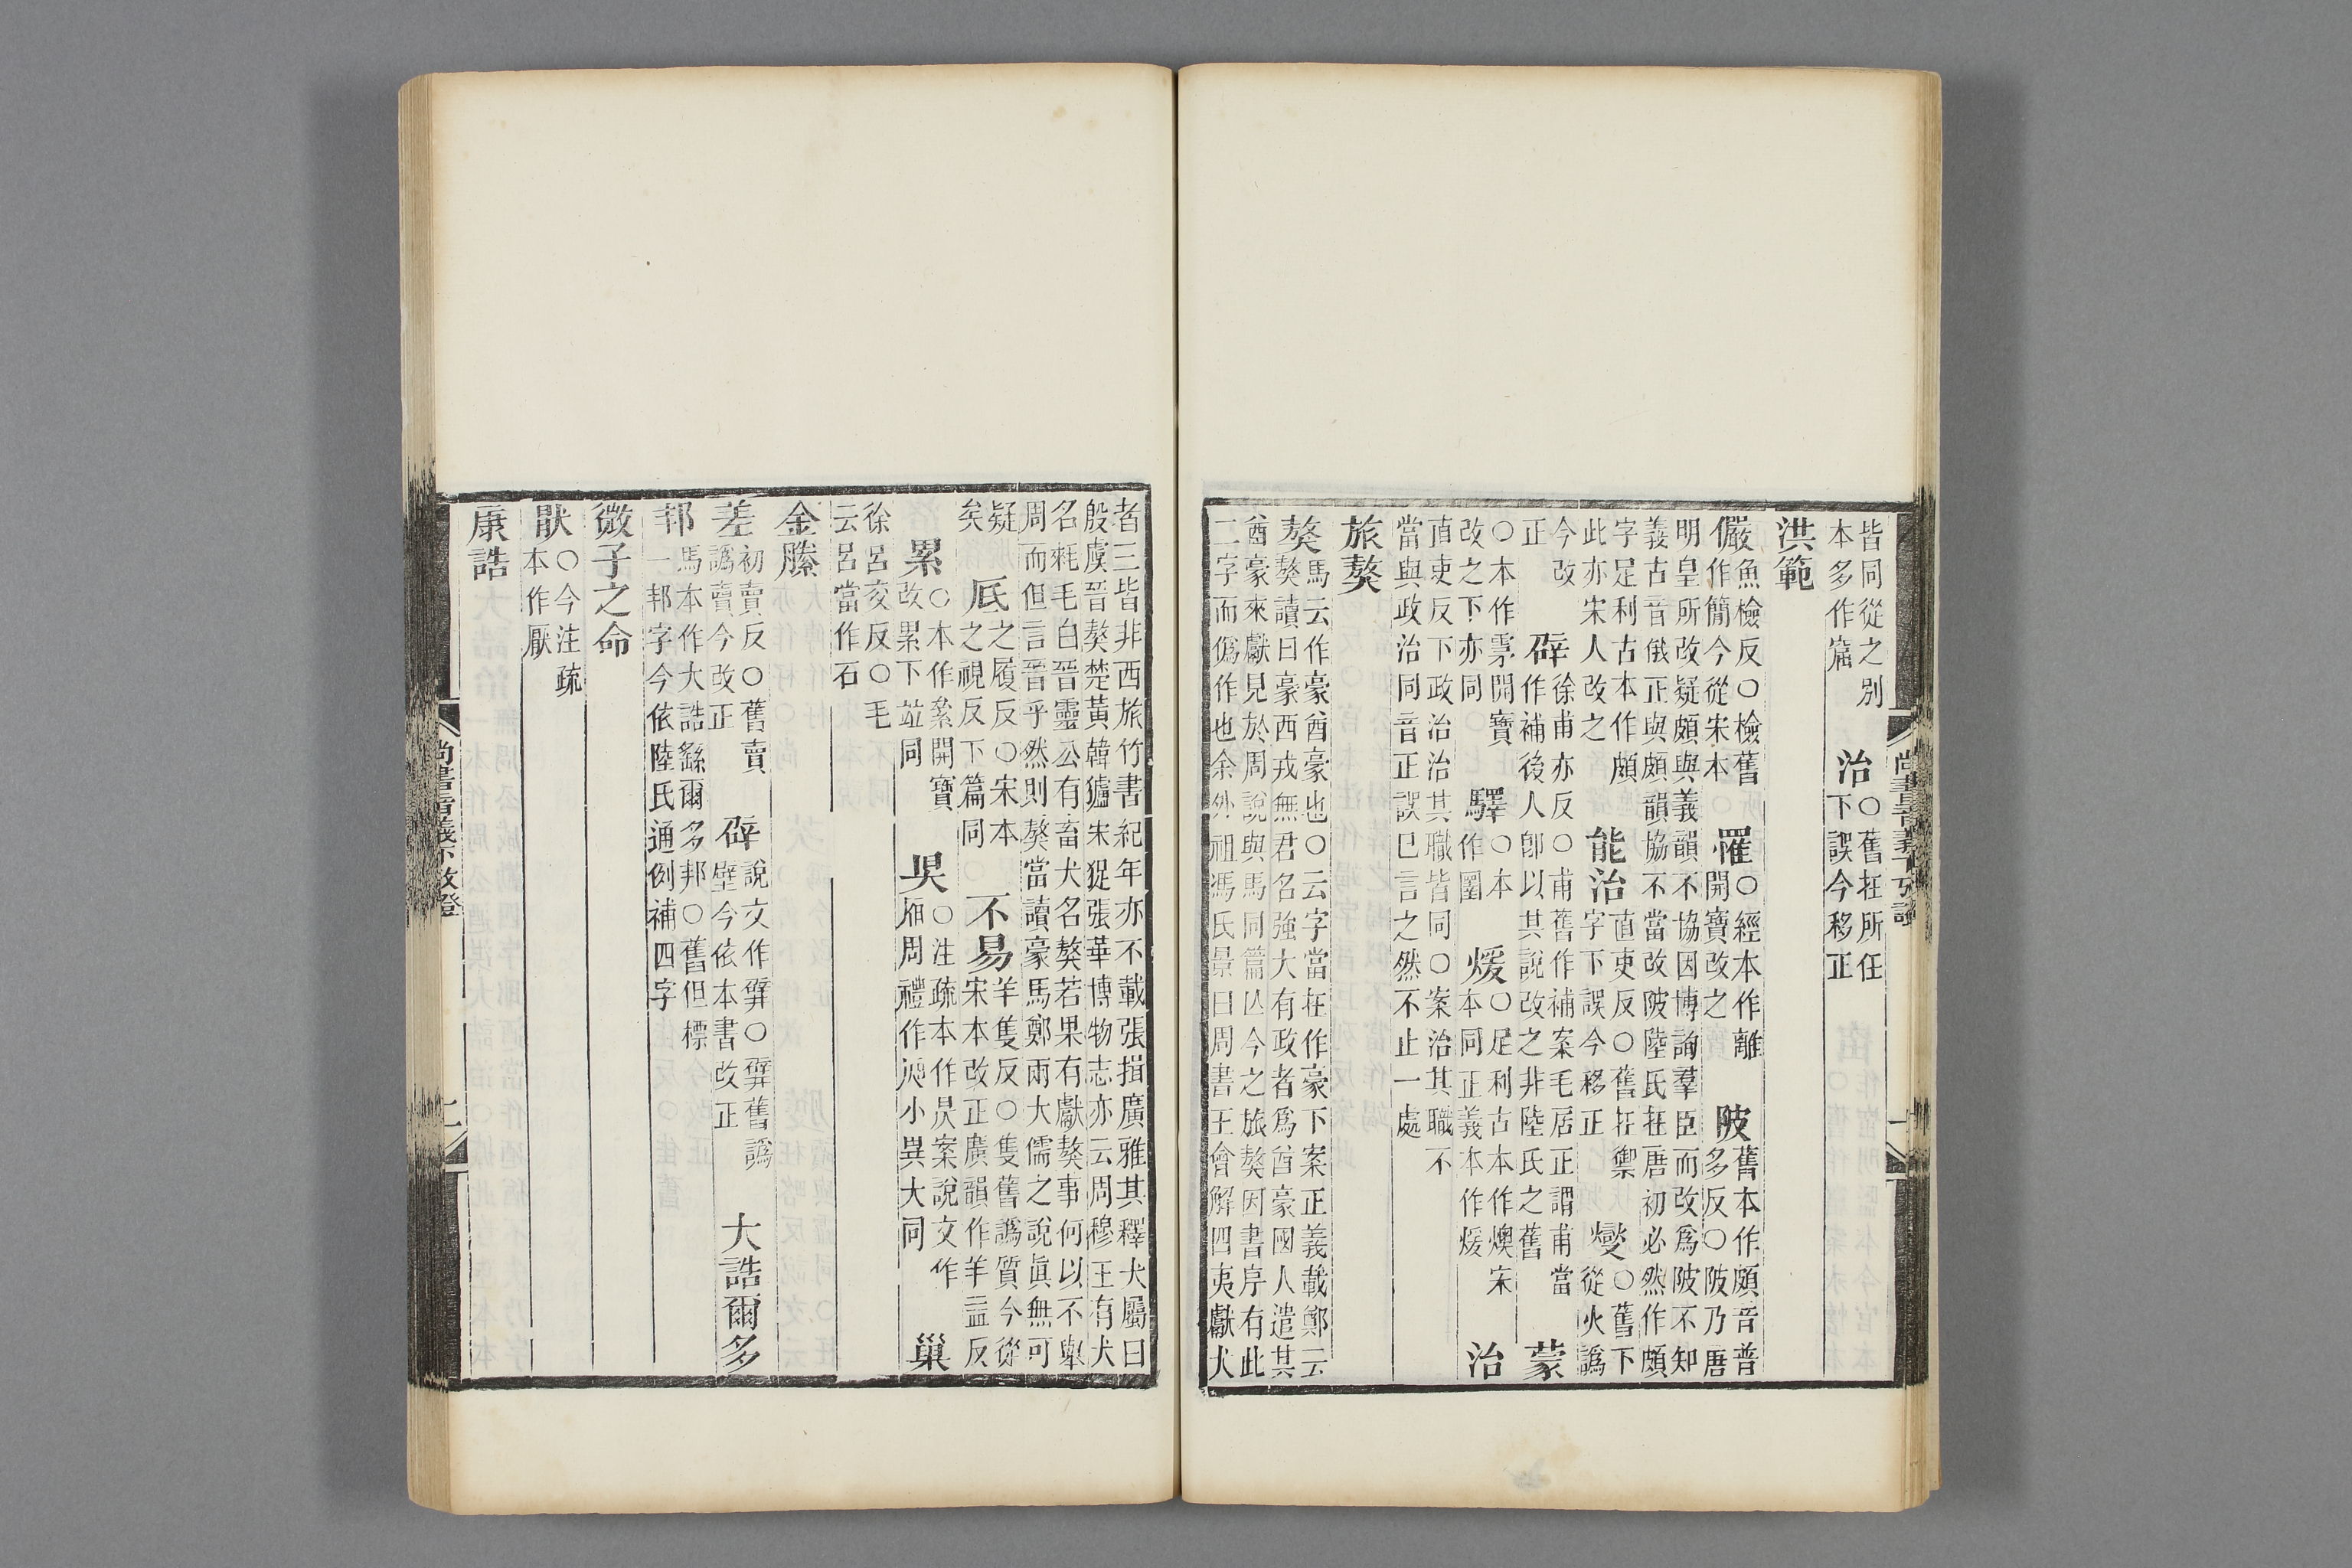 皆同從之別
本多作窟
治
○舊在所任
下誤今移正
洪範
儼
魚檢反○檢舊
作簡今從宋本
罹
○經本作離
開寶改之
陂
舊本作頗音普
多反○陂乃唐
明皇所改疑頗與義韻不協因博詢羣臣而改爲陂不知
義古音俄正與頗韻協不當改陂陸氏在唐初必然作頗
字足利古本作頗
此亦宋人改之
能治
直吏反○舊在禦
字下誤今移正
燮
○舊下
從火譌
今改
正
辟
徐甫亦反○甫舊作補案毛居正謂甫當
作補後人卽以其說改之非陸氏之舊
蒙
○本作雺開寶
改之下亦同
驛
○本
作圛
煖
○足利古本作燠宋
本同正義本作煖
治
直吏反下政治治其職皆同○案治其職不
當與政治同音正誤已言之然不止一處
旅獒
獒
馬云作豪酋豪也○云字當在作豪下案正義載鄭云
獒讀曰豪西戎無君名強大有政者爲酋豪國人遣其
酋豪來獻見於周說與馬同篇亾今之旅獒因書序有此
二字而僞作也余外祖馮氏景曰周書王會解四夷獻犬
者三皆非西旅竹書紀年亦不載張揖廣雅其釋犬屬曰
殷虞晉獒楚黃韓獹宋猩張華博物志亦云周穆王有犬
名耗毛白晉靈公有畜犬名獒若果有獻獒事何以不舉
周而但言晉乎然則獒當讀豪馬鄭兩大儒之說眞無可
疑
矣
厎
之履反○宋本
之視反下篇同
不易
羊隻反○隻舊譌質今從
宋本改正廣韻作羊益反
累
○本作絫開寶
改累下竝同
○注疏本作昃案說文作
周禮作 小異大同
巢
徐呂交反○毛
云呂當作石
金縢
差
初賣反○舊賣
譌賣今改正
辟
說文作 ○ 舊譌
壁今依本書改正
大誥爾多
邦
馬本作大誥繇爾多邦○舊但標
一邦字今依陸氏通例補四字
微子之命
猒
○今注疏
本作厭
康誥